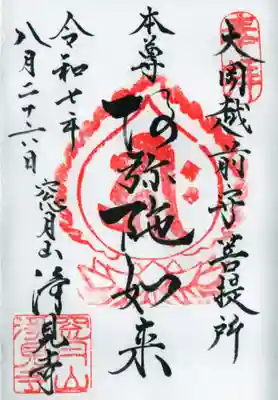 奉拝
大岡越前守菩提所
本尊
阿弥陀如来
令和七年
八月二十六日
窓月山 浄見寺